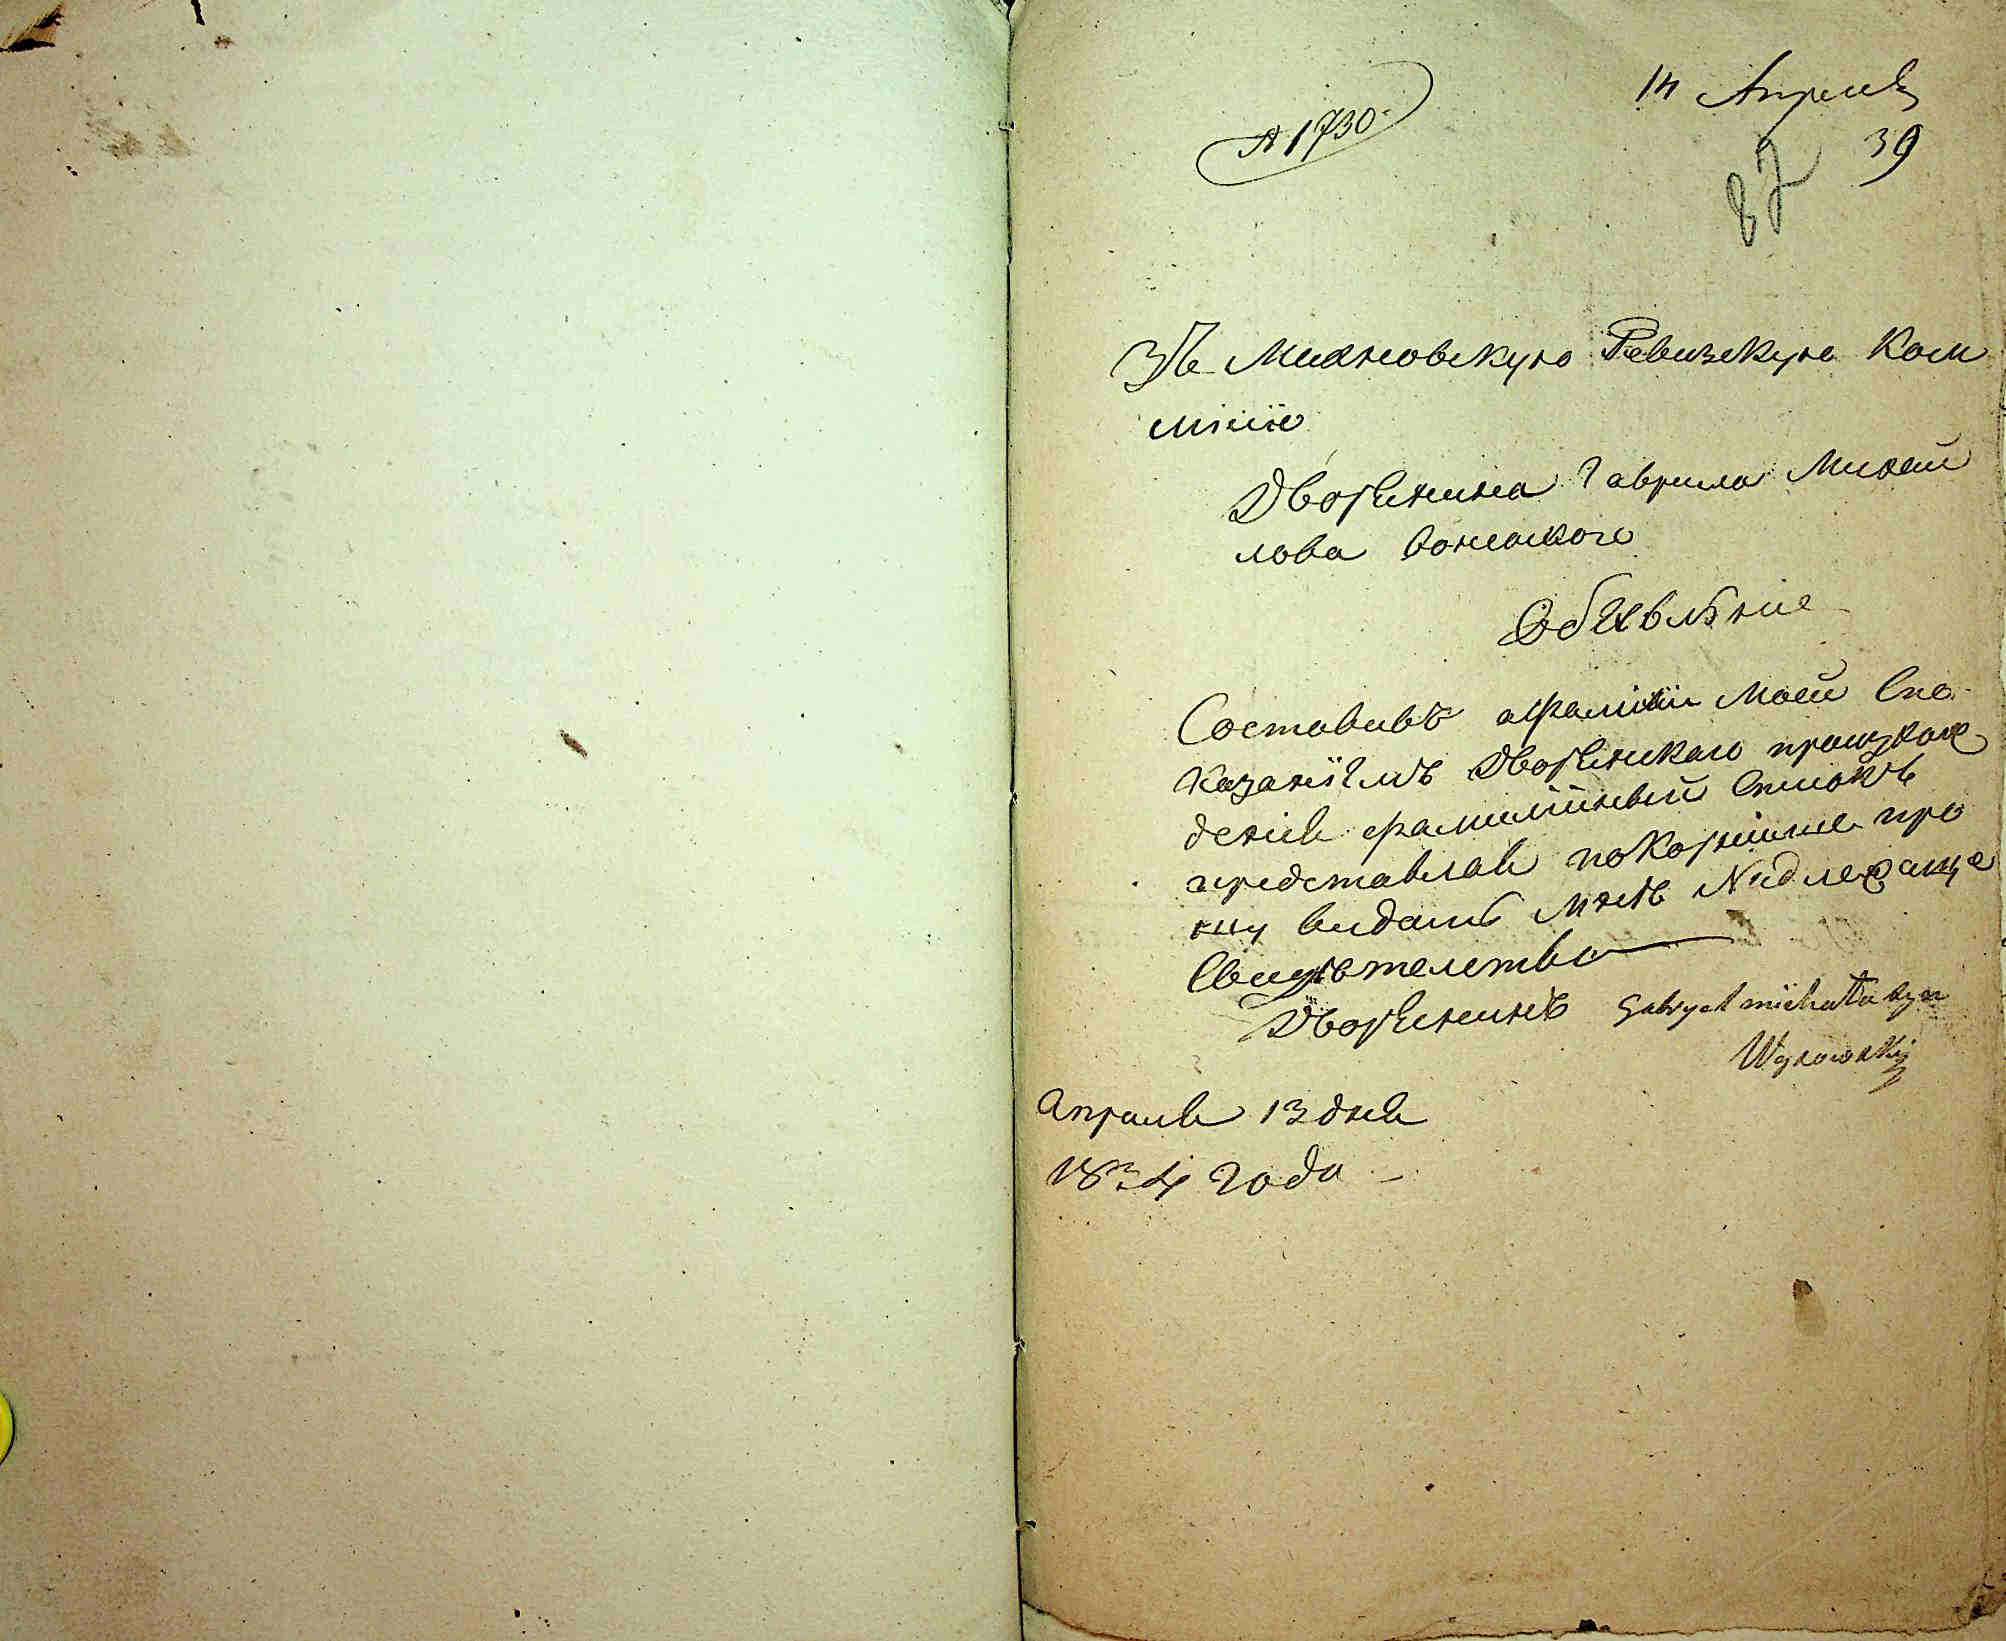 14 Апреля
№ 1730
39
87
Въ Махновскую Ревизскую Ком
мисiю
Дворянина Гаврила Михай
лова
Объявлѣние
Составивъ о фамилiи моейСпо
казанiiмъ Дворянскаго происхож
денiя фамилiйный Списокъ
представляя покорнiйше про
шу видать мнѣ Надлежаще
Свидѣтелство
Дворянинъ Gabryel michała syn
Wysowskij
Апреля 13 дня
1834 года